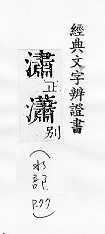 經典文字辨證書
潚正瀟別
(水部 P.77)